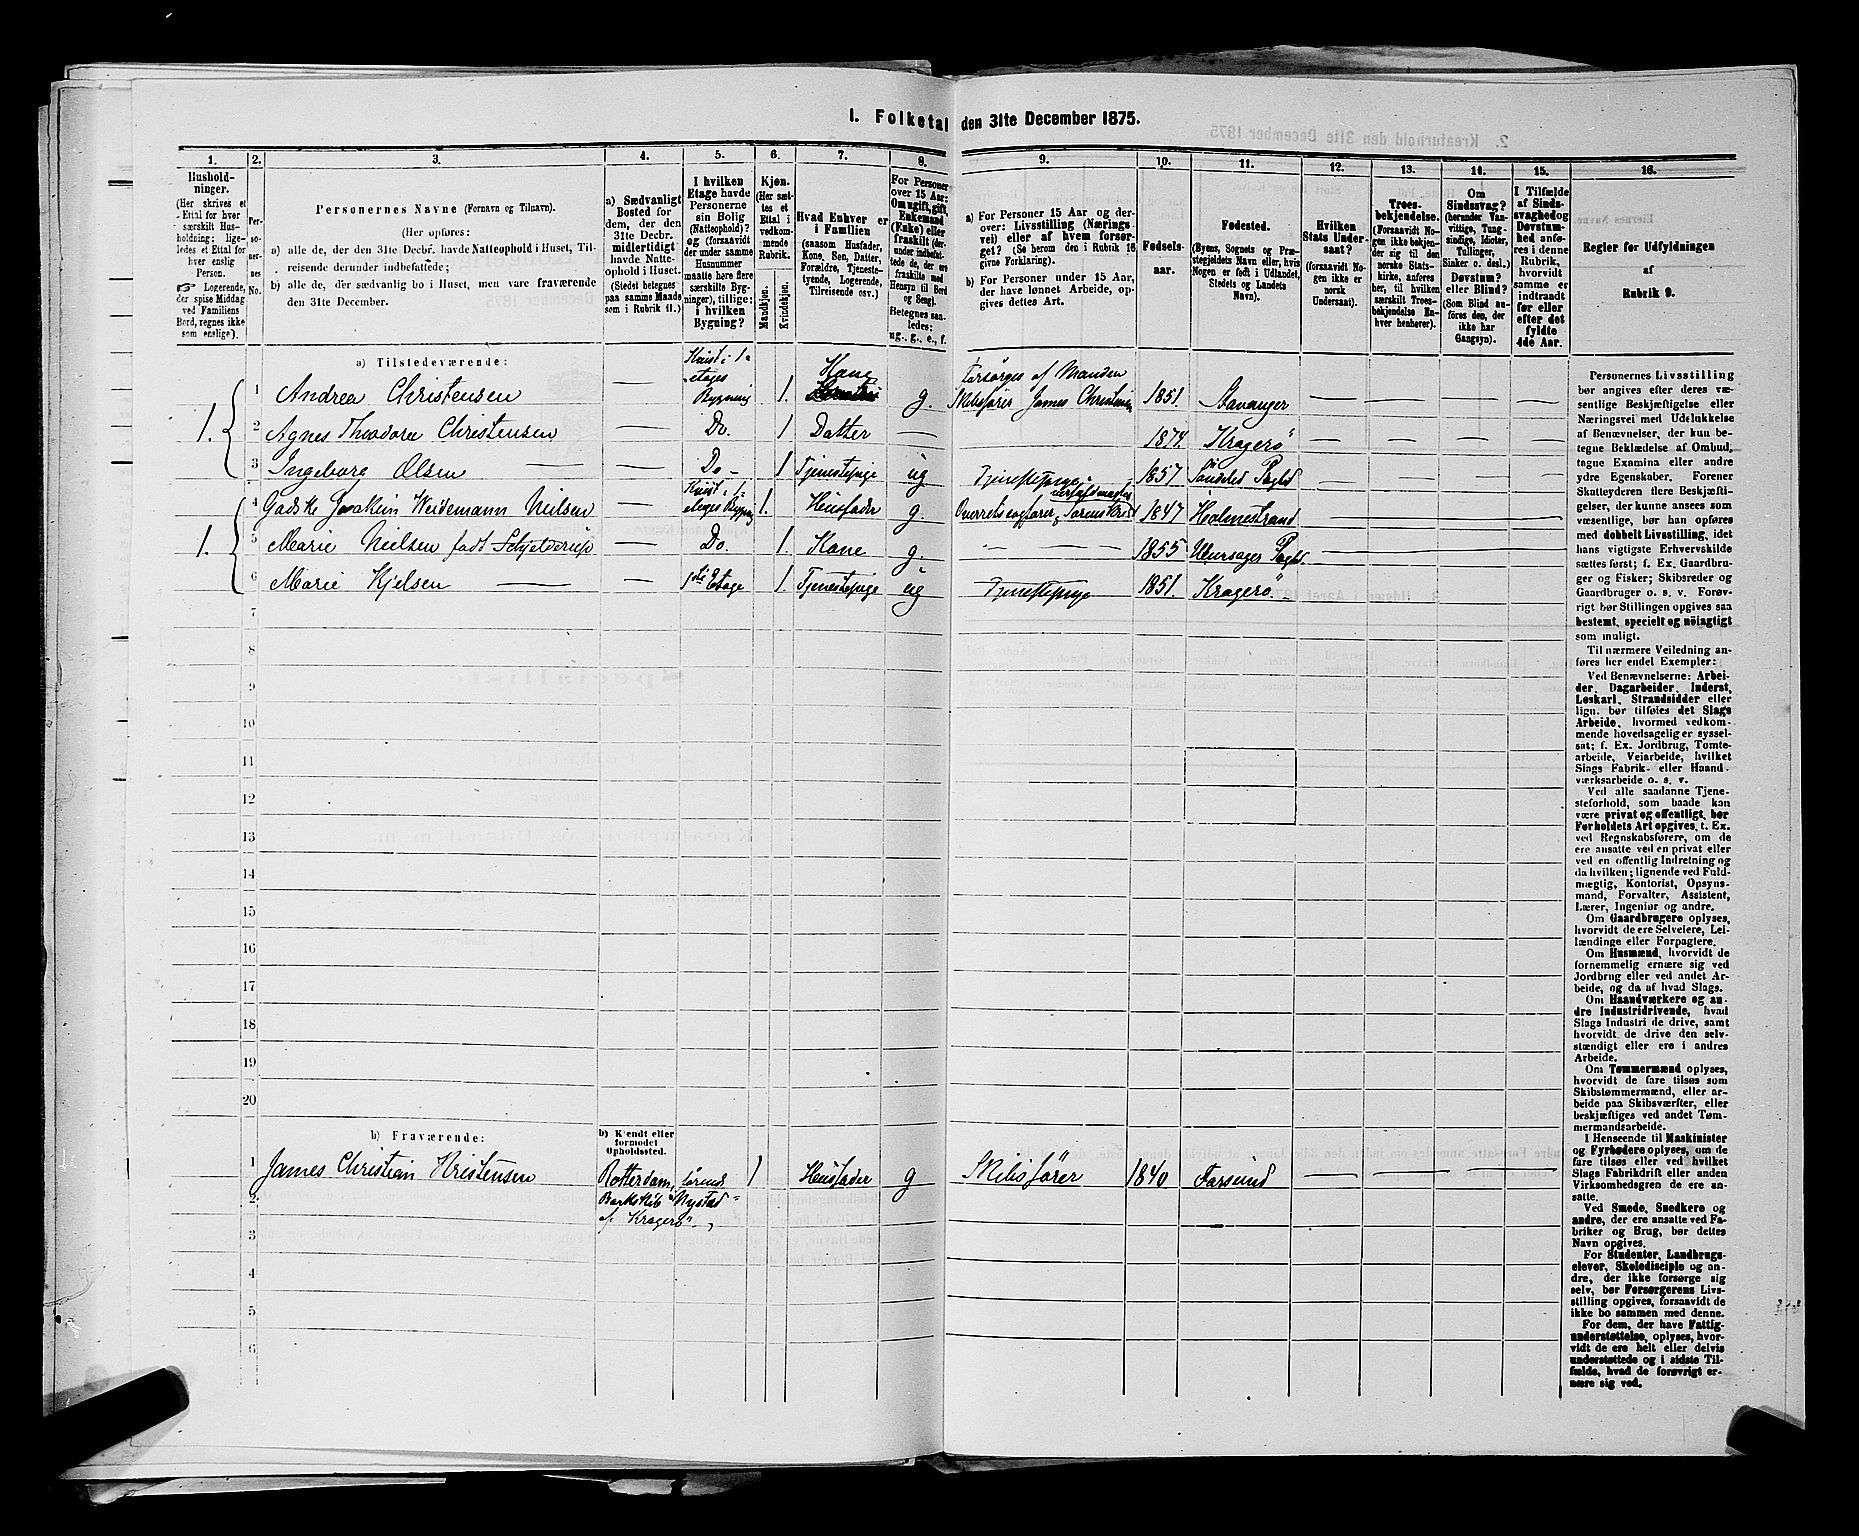 I. Folketal den 31te December 1875.
1.
Hushold-
ninger.
(Her skrives et
Ettal for hver
særskilt Hus-
holdning; lige-
ledes et Ettal
for hver
enslig
Person.
Logerende,
der spise Middag
ved Familiens
Bord, regnes ikke
som enslige).
2.
Per-
so-
ner-
nes
No.
3.
Personernes Navne (Fornavn og Tilnavn).
(Her opføres:
a) alle de, der den 31te Decbr. havde Natteophold i Huset, Til-
reisende derunder indbefattede;
b) alle de, der sædvanlig bo i Huset, men vare fraværende
den 31te December.
4.
a) Sædvanligt
Bosted for
dem, der den
31te Decbr.
midlertidigt
havde Natte-
ophold i Huset.
(Stedet betegnes
paa samme Maade
som i Rubrik 11.)
5.
I hvilken
Etage havde
Personerne
sin Bolig
(Natteophold)?
og (forsaavidt
der under samme
Husnummer
maatte høre flere
særskilte Byg-
ninger), tillige:
i hvilken
Bygning?
6.
Kjøn.
(Her sæt-
tes et
Ettal i
vedkom-
mende
Rubrik.
Mandkjøn.
Kvindekjøn.
7.
Hvad Enhver er
i Familien
(saasom Husfader,
Kone, Søn, Datter,
Forældre, Tjeneste-
tyende, Logerende,
Tilreisende osv.)
8.
For Personer
over 15 Aar:
Om ugift, gift,
Enkemand
(Enke) eller
fraskilt (der-
under indbefat-
tede de, der ere
fraskilte med
Hensyn til Bord
og Seng).
Betegnes saa-
ledes:
ug., g., e., f.
9.
a) For Personer 15 Aar og der-
over: Livsstilling (Nærings-
vei) eller af hvem forsør-
get? (Se herom den i Rubrik 16
givne Forklaring).
b) For Personer under 15 Aar,
der have lønnet Arbeide, op-
gives dettes Art.
10.
Fødsels-
aar.
11.
Fødested.
(Byens, Sognets og Præ-
stegjeldets Navn eller, hvis
Nogen er født i Udlandet,
Stedets og Landets
Navn).
12.
Hvilken
Stats Under-
saat?
(forsaavidt No-
gen ikke er
norsk
Undersaat).
13.
Troes-
bekjendelse.
(Forsaavidt No-
gen ikke bekjen-
der sig til den
norske Stats-
kirke, anføres
her, til hvilken
særskilt Troes-
bekjendelse En-
hver henhører).
14.
Om
Sindssvag?
(herunder Van-
vittige, Tung-
sindige, Idioter,
Tullinger,
Sinker o. desl.)
Døvstum?
eller Blind?
(Som Blind an-
føres den, der
ikke har
Gangsyn).
15.
I Tilfælde
af Sinds-
svaghed og
Døvstum-
hed anfø-
res i denne
Rubrik,
hvorvidt
samme er
indtraadt
før eller
efter det
fyldte
4de Aar.
16.
Regler for Udfyldningen
af
Rubrik 9.
a) Tilstedeværende:
1. 1 Andrea Christensen — Kvist i 1ste etages Bygning 1. Kone g. Forsørges af Manden Skibsfører James Christensen 1851. Stavanger — — — —
2 Agnes Theodora Christensen — Do. 1 Datter — 1874. Kragerø — — — —
3 Ingeborg Olsen — — Do — 1 Tjenestepige ug Tjenestepige 1857 Sandsted Pgld — — — —
1. 4 Joakim Weidemann Nielsen Kvist i 1ste etages Bygning 1. Husfader g. 1847 Holmestrand
5 Marie Nielsen født Schjelderup — Do. 1. Kone g. — — 1855 Ullensager Pgld.
6 Marie Kjelsen — — 1ste Etage 1 Tjenestepige ug Tjenestepige 1851. Kragerø.
7
8
9
10
11
12
13
14
15
16
17
18
19
20
b) Fraværende:
b) Kjendt eller
formodet
Opholdssted.
1 James Christian Kristensen Rotterdam, førende 1 Husfader g Skibsfører 1840 Farsund — — — —
2 Barkskib "Nystad"
af Kragerø
3
4
5
6
Personernes Livsstilling
bør angives efter deres væ-
sentlige Beskjæftigelse eller
Næringsvei med Udelukkelse
af Benævnelser, der kun be-
tegne Beklædelse af Ombud,
tagne Examina eller andre
ydre Egenskaber. Forener
Skatteyderen flere Beskjæfti-
gelser, der kunne ansees som
væsentlige, bør han opføres
med dobbelt Livsstilling, idet
hans vigtigste Erhvervskilde
sættes først; f. Ex. Gaardbru-
ger og Fisker; Skibsreder og
Gaardbruger o. s. v. Forøv-
rigt bør Stillingen opgives saa
bestemt, specielt og nøiagtigt
som muligt.
Til nærmere Veiledning an-
føres her endel Exempler:
Ved Benævnelserne: Arbei-
der, Dagarbeider, Inderst,
Løskarl, Strandsidder eller
lign. bør tilføies det Slags
Arbeide, hvormed vedkom-
mende hovedsagelig er syssel-
sat; f. Ex. Jordbrug, Tomte-
arbeide, Veiarbeide, hvilket
Slags Fabrik- eller Haand-
værksarbeide o. s. v.
Ved alle saadanne Tjene-
steforhold, som baade kan
være privat og offentligt, bør
Forholdets Art opgives, t. Ex.
ved Regnskabsførere, om de
ere ansatte ved en privat eller
ved en offentlig Indretning og
da hvilken; lignende ved Fuld-
mægtig, Kontorist, Opsyns-
mand, Forvalter, Assistent,
Lærer, Ingeniør og andre.
Om Gaardbrugere oplyses,
hvorvidt de ere Selveiere, Lei-
lændinge eller Forpagtere.
Om Husmænd, hvorvidt de
fornemmelig ernære sig ved
Jordbrug eller ved andet Ar-
beide, og da af hvad Slags.
Om Haandværkere og an-
dre Industridrivende, hvad
Slags Industri de drive, samt
hvorvidt de drive den selv-
stændigt eller ere i andres
Arbeide.
Om Tømmermænd oplyses,
hvorvidt de fare tilsøs som
Skibstømmermænd, eller ar-
beide paa Skibsværfter, eller
beskjæftiges ved andet Tøm-
mermandsarbeide.
I Henseende til Maskinister
og Fyrbødere oplyses, om de
fare tilsøs eller ved hvilket
Slags Fabrikdrift eller anden
Virksomhedsgren de ere an-
satte.
Ved Smede, Snedkere og
andre, der ere ansatte ved Fa-
briker og Brug, bør dettes
Navn opgives.
For Studenter, Landbrugs-
elever, Skoledisciple og an-
dre, der ikke forsørge sig
selv, bør Forsørgerens Livs-
stilling opgives, forsaavidt de
ikke bo sammen med denne.
For dem, der have Fattig-
understøttelse, oplyses, hvor-
vidt de ere helt eller delvis
understøttede og i sidste Til-
fælde, hvad de forøvrigt er-
nære sig ved.